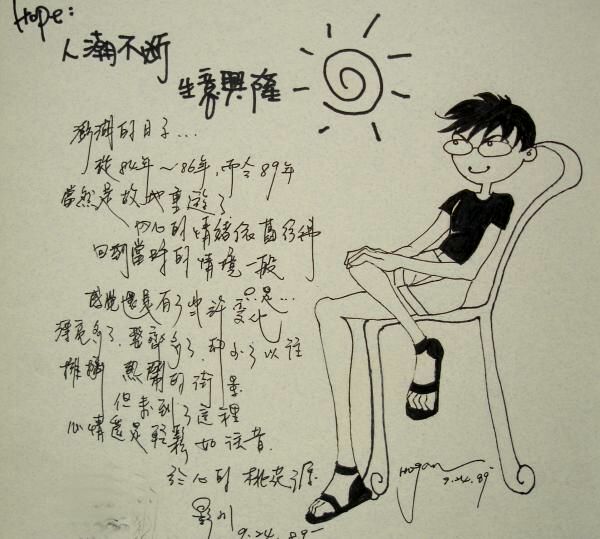 Hope:
人潮不斷
生意興隆
澎湖的日子...
從84年~86年,而今89年
當然是故地重遊了
內心的情緒依舊彷彿
回到當時的情境一般
只是...
感覺還是有了些許變化
漂亮多了、整齊多了、卻少了以往
擁擠 熱鬧的街景
但來到了這裡
心情還是輕鬆如往昔.
於心的桃花源
影川
9.24.89-
Hogan
9.24.89-